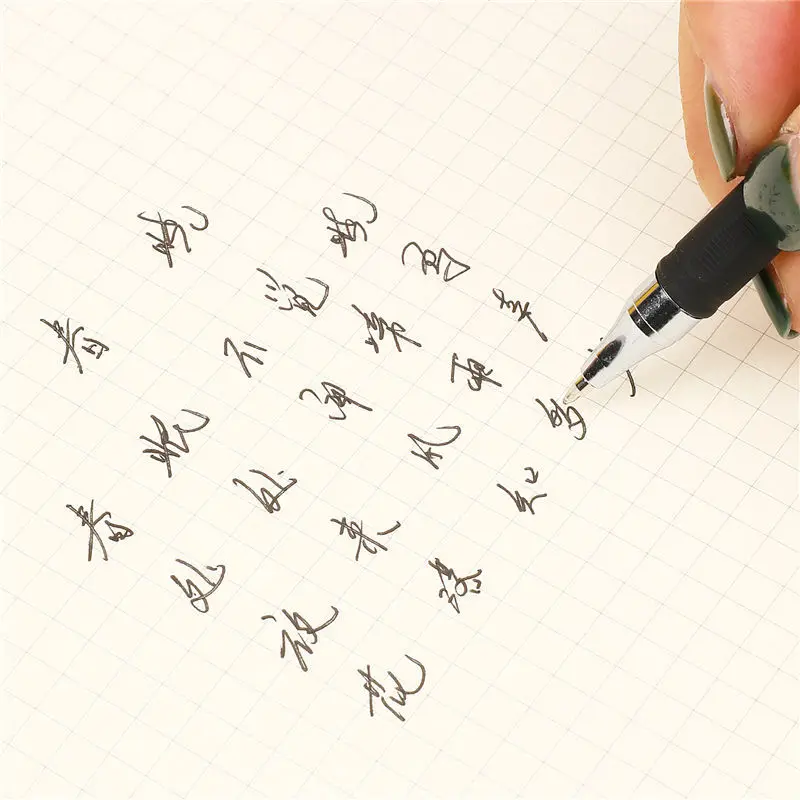 春晓
春眠不觉晓
处处闻啼鸟
夜来风雨声
花落知多